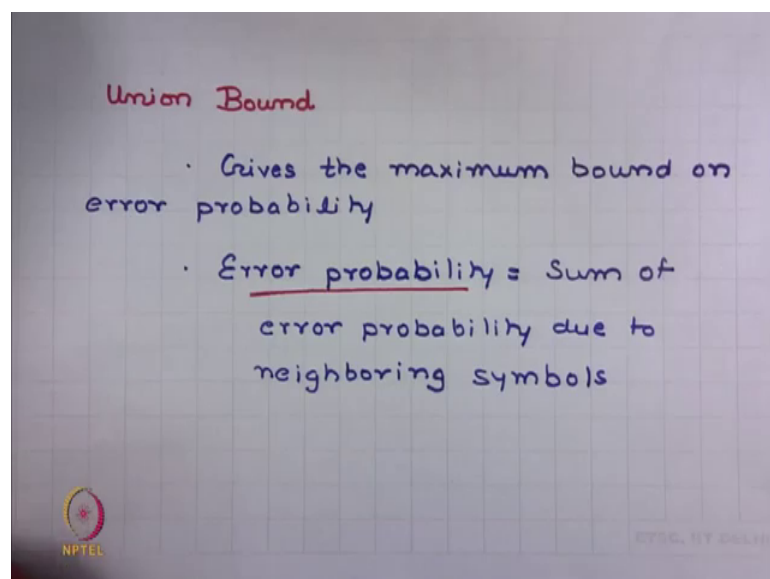 Union Bound
· Gives the maximum bound on
error probability
· Error probability = Sum of
error probability due to
neighboring symbols
NPTEL
ETSC, IIT DELHI